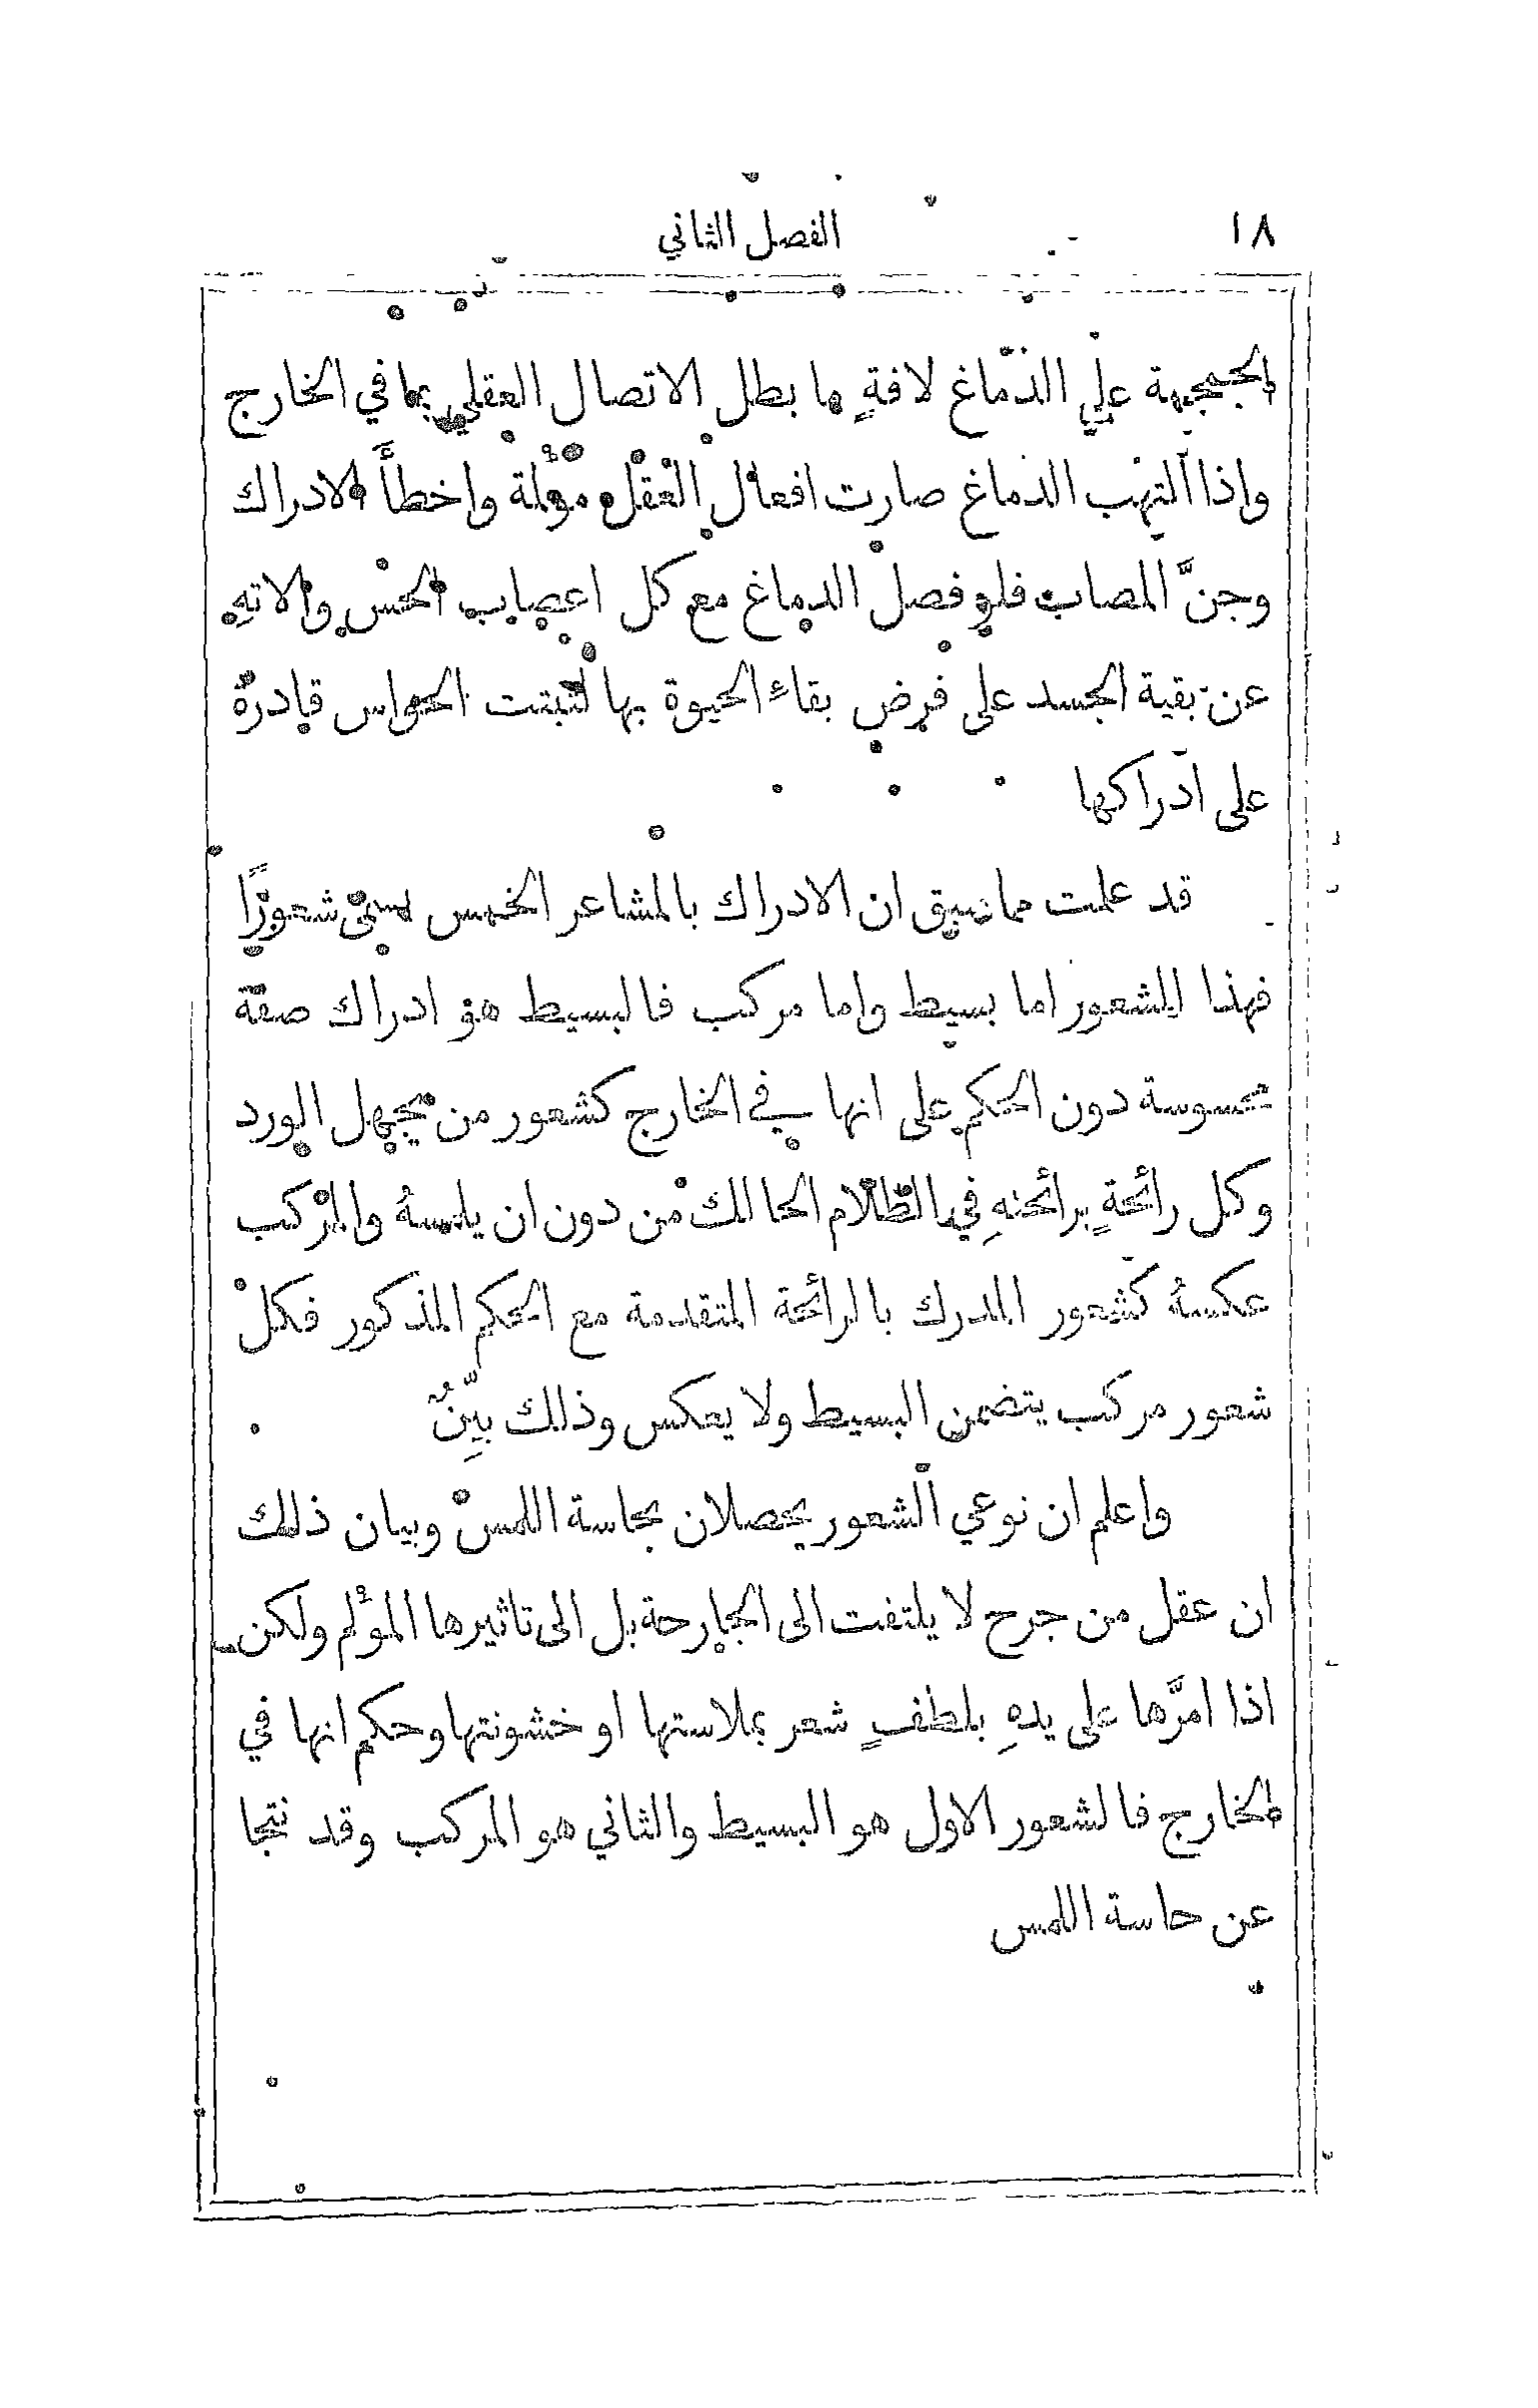 ١٨ الفصل الثاني
الجمجمة على الدماغ لافةٍ ما بطل الاتصال العقلي بما في الخارج
واذا التهب الدماغ صارت افعال العقل مؤلمة واخطأَ الادراك
وجنَّ المصاب فلو فصل الدماغ مع كل اعصاب الحس والاتهِ
عن بقية الجسد على فرض بقاء الحيوة بها لثبتت الحواس قادرة
على ادراكها
قد علمت مما سبق ان الادراك بالمشاعر الخمس يسمى شعورًا
فهذا الشعور اما بسيط واما مركب فالبسيط هو ادراك صفة
محسوسة دون الحكم على انها في الخارج كشعور من يجهل الورد
وكل رائحةٍ برائحتهِ في الظلام الحالك من دون ان يلمسهُ والمركب
عكسهُ كشعور المدرك بالرائحة المتقدمة مع الحكم المذكور فكل
شعور مركب يتضمن البسيط ولا يعكس وذلك بيِّنٌ
واعلم ان نوعي الشعور يحصلان بحاسة اللمس وبيان ذلك
ان عقل من جرح لا يلتفت الى الجارحة بل الى تاثيرها المؤلم ولكن
اذا امرَّها على يدهِ بلطفٍ شعر بملاستها او خشونتها وحكم انها في
الخارج فالشعور الاول هو البسيط والثاني هو المركب وقد نتجا
عن حاسة اللمس